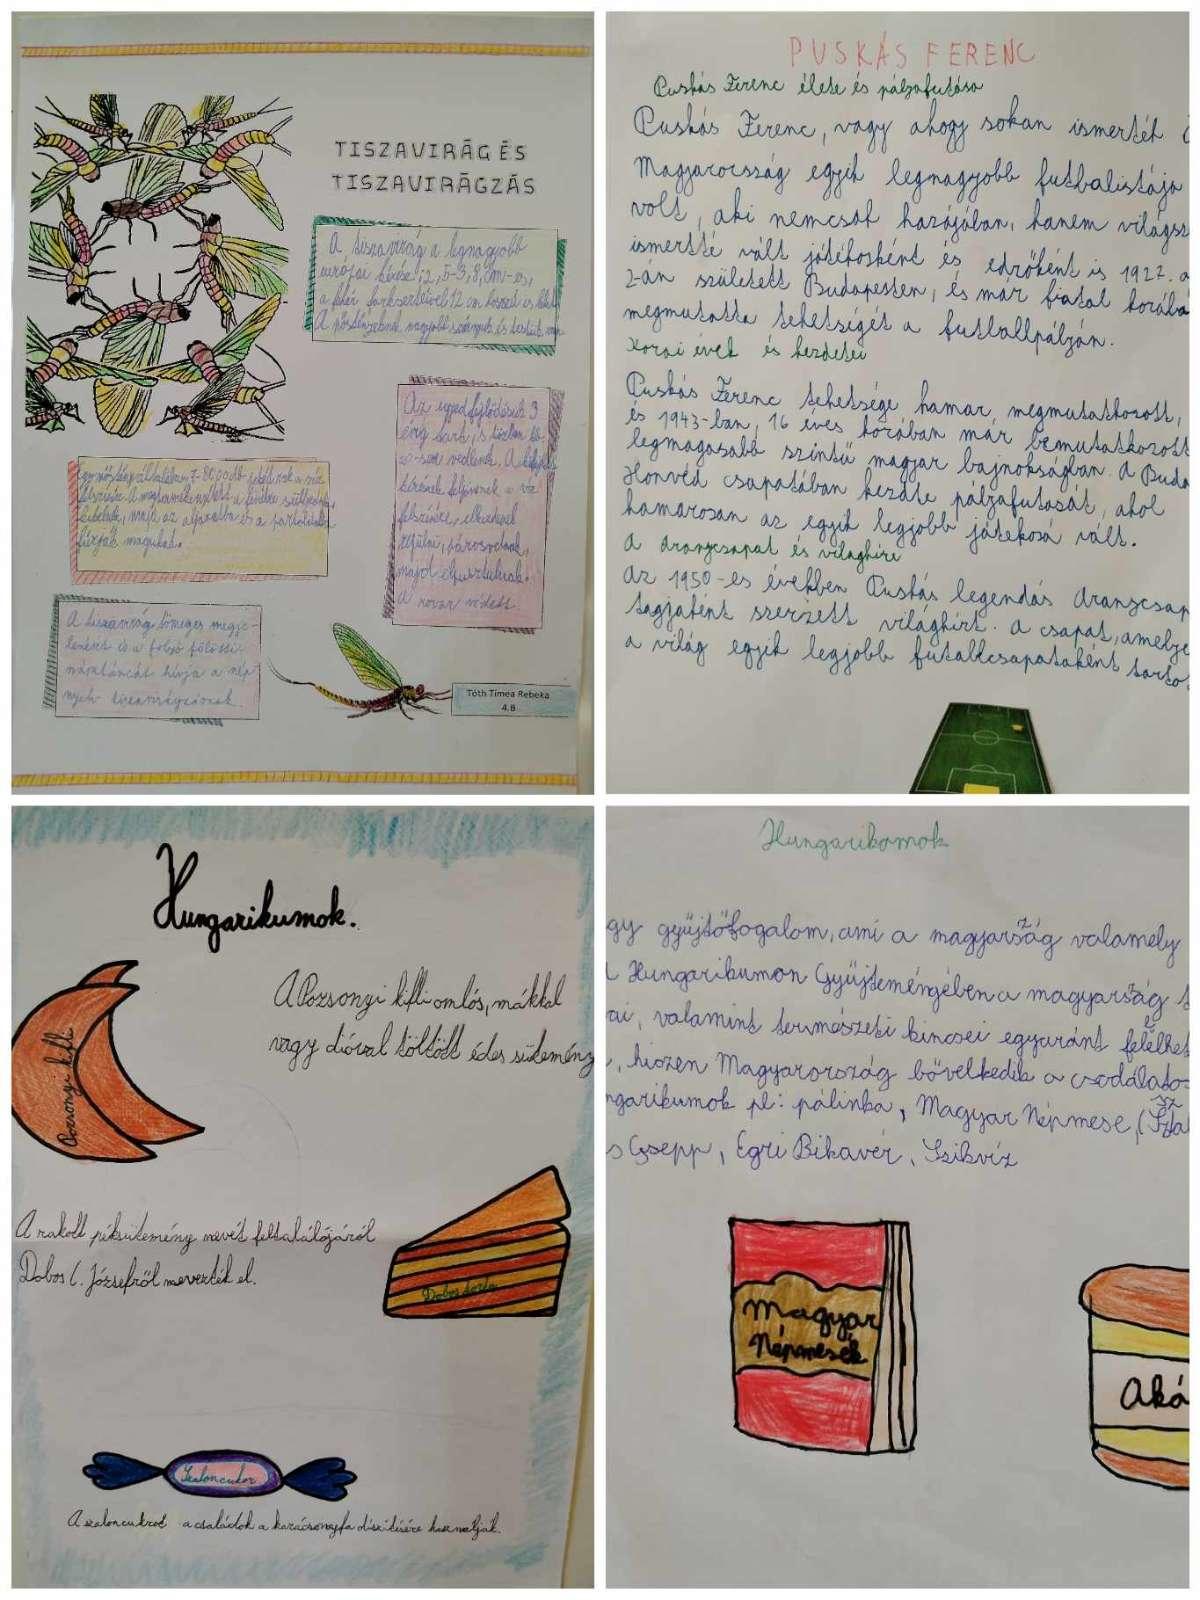 TISZAVIRÁG ÉS
TISZAVIRÁGZÁS
A tiszavirág a legnagyobb
európai kérész 2,5-3,8 cm-es,
a fehér farksertéivel 12 cm hosszú is lehet.
A nőstényeknek nagyobb szárnyuk és testük van
Az egyedfejlődésük 3
évig tart, s közben
20-szor vedlenek. A
feljönnek a víz
felszínére, elkezdenek
repülni, párosodnak,
majd elpusztulnak.
A rovar védett.
Egy nőstény általában 7-8000 db petét rak a víz
felszínére. A megtermékenyített
kikelnek, majd az aljzatba és a partoldalba
fúrják magukat.
A tiszavirág tömeges megje-
lenését és a folyó fölötti
násztáncát hívja a nép-
nyelv tiszavirágzásnak.
Tóth Tímea Rebeka
4.B
PUSKÁS FERENC
Puskás Ferenc élete és pályafutása
Puskás Ferenc, vagy ahogy sokan ismerték
Magyarország egyik legnagyobb futbalistája
volt, aki nemcsak hazájában, hanem világsz
ismertté vált játékosként és edzőként is 1927. a
2-án született Budapesten, és már fiatal korába
megmutatta tehetségét a futballpályán.
Korai évek és kezdetei
Puskás Ferenc tehetsége hamar megmutatkozott,
és 1943-ban, 16 éves korában már bemutatkozott
legmagasabb szintű magyar bajnokságban. A Buda
Honvéd csapatában kezdte pályafutását, ahol
hamarosan az egyik legjobb játékosá vált.
A aranycsapat és világhíre
Az 1950-es években Puskás legendás Aranycsap
tagjaként szerzett világhírt. A csapat, amelye
a világ egyik legjobb futballcsapataként tarto
Hungarikumok.
A Pozsonyi kifli omlós, mákkal
vagy dióval töltött édes sütemény
Pozsonyi kifli
A rakott péksütemény nevét feltalálójáról
Dobos C. Józsefről nevezték el.
Dobos torta
Szaloncukor
A szaloncukrot a családok a karácsonyfa díszítésére használják.
Hungarikomok
gy gyűjtőfogalom, ami a magyarság valamely
Hungarikumon Gyűjteményében a magyarság t
ai, valamint természeti kincsei egyaránt fellelhet
, hiszen Magyarország bővelkedik a csodálatos
ngarikumok pl: pálinka, Magyar Népmese, (Sza
s Csepp, Egri Bikavér, Szikvíz
Magyar
Népmesék
Aká